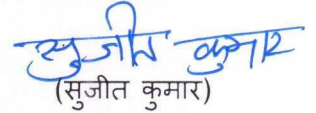 सुजीत कुमार
(सुजीत कुमार)